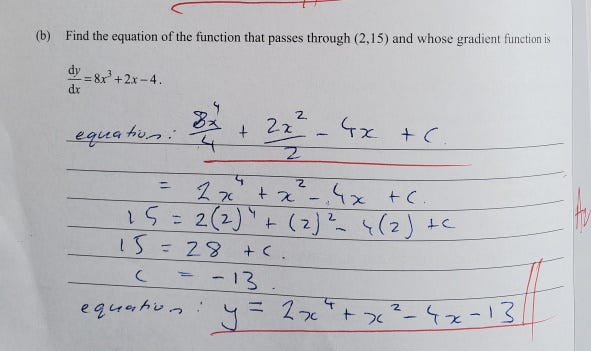 (b) Find the equation of the function that passes through (2,15) and whose gradient function is
dy/dx = 8x³ + 2x − 4.
equation: 8x⁴/4 + 2x²/2 − 4x + C.
= 2x⁴ + x² − 4x + C.
15 = 2(2)⁴ + (2)² − 4(2) + C
15 = 28 + C.
C = −13.
equation: y = 2x⁴ + x² − 4x − 13